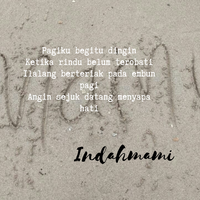 Pagiku begitu dingin
Ketika rindu belum terobati
Ilalang berteriak pada embun
pagi
Angin sejuk datang menyapa
hati
Indahmami